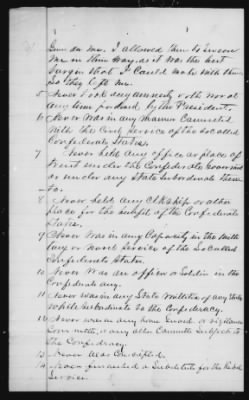 Gun on me. I allowed them to swear
me in their way, as it was the best
bargon that I could make with them
so they left me.
5 Never took any amnesty oath nor at
any time pardoned by the President.
6 Never was in any manner connected
with the Civil Service of the so called
Confederate States.
7 Never held any office or place of
trust under the Confederate Governmt
or under any State Subordinate there
to.
8 Never held any Clkship or other
place for the benefit of the Confederate
States.
9 Never was in any Capacity in the Milit
ary or naval Service of the So called
Confederate States
10 Never was an officer or soldier in the
Confederate army.
11 Never was in any State Militia of any State
while Subordinate to the Confederacy.
12 Never was in any home Guard or vigilance
Committe, or any other Committe Subject to
the Confederacy
13 Never was Conscripted.
14 Never furnished a Substitute for the Rebel
Service.